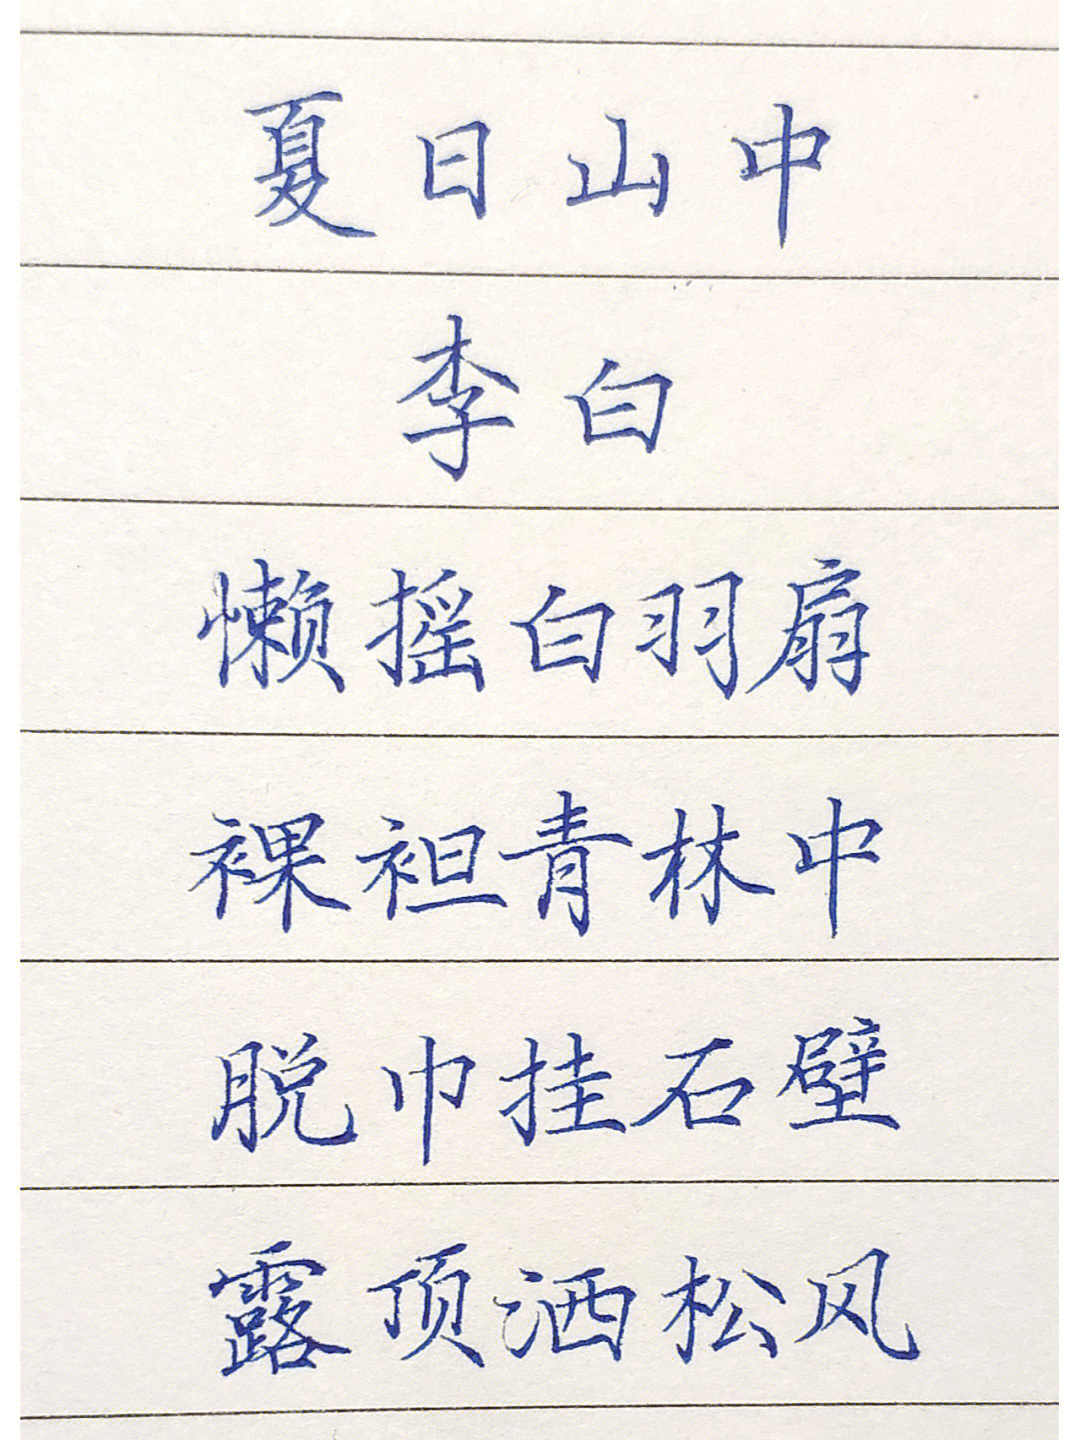 夏日山中
李白
懒摇白羽扇
裸袒青林中
脱巾挂石壁
露顶洒松风